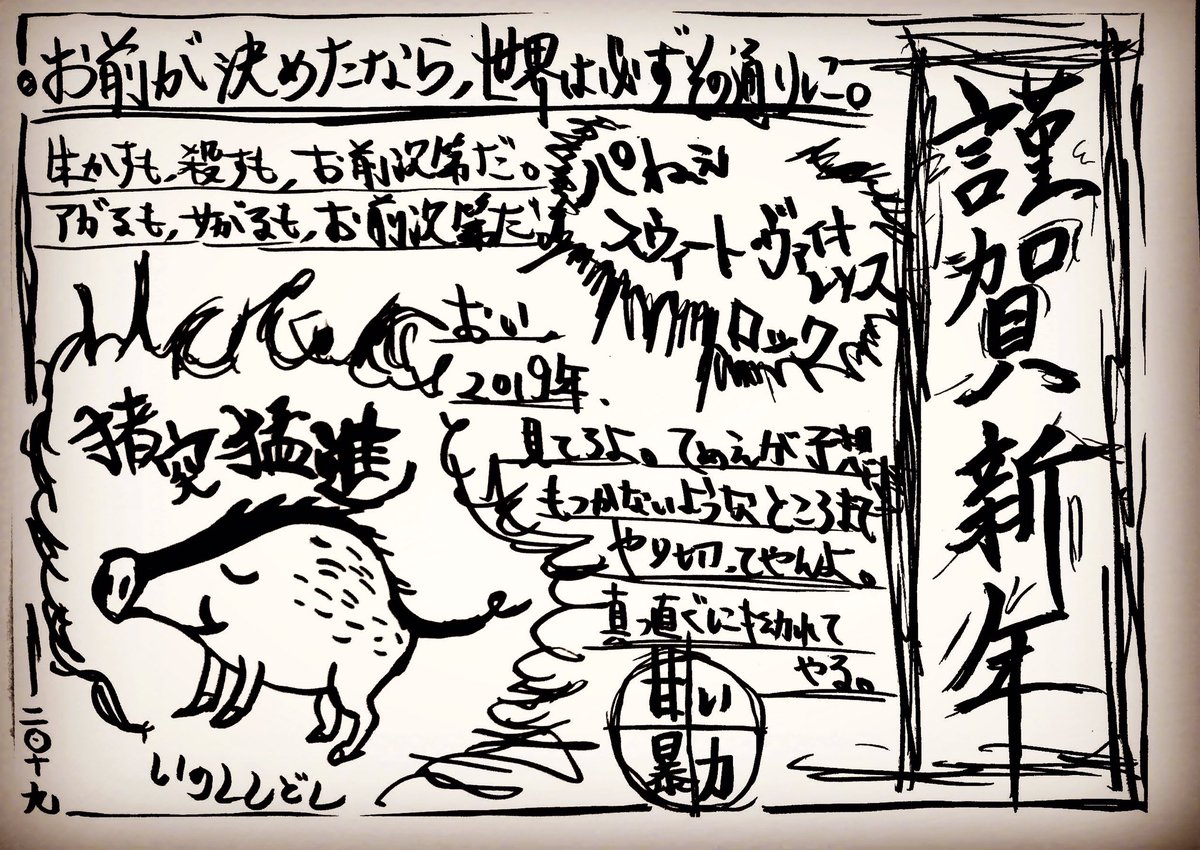 謹賀新年
お前が決めたなら、世界は必ずその通りに。
生かすも、殺すも、お前次第だ。
アガるも、サがるも、お前次第だ。
パねえ
スウィートヴァイオ
レンス
ロック
おい、
2019年、
見てろよ。てめえが予想
もつかないようなところまで
やり切ってやんよ。
真っ直ぐに
やる。
猪突猛進
いのししどし
甘い
暴力
二〇十九